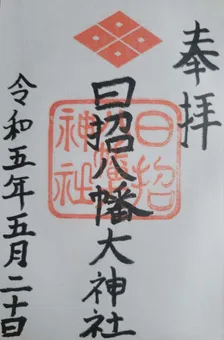 奉拝
日招八幡大神社
日招八幡神社
令和五年五月二十日